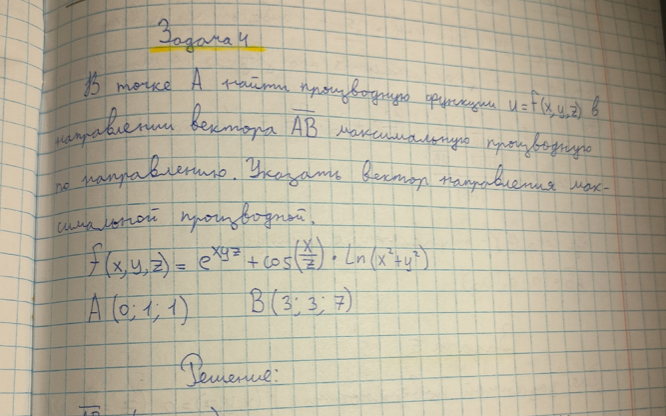 Задача 4
В точке А найти производную функции u=f(x,y,z) в
направлении вектора AB максимальную производную
по направлению. Указать вектор направления мак-
симальной производной.
f(x,y,z) = e^xyz + cos(x/z) · Ln(x²+y²)
A(0; 1; 1) B(3; 3; 7)
Решение: